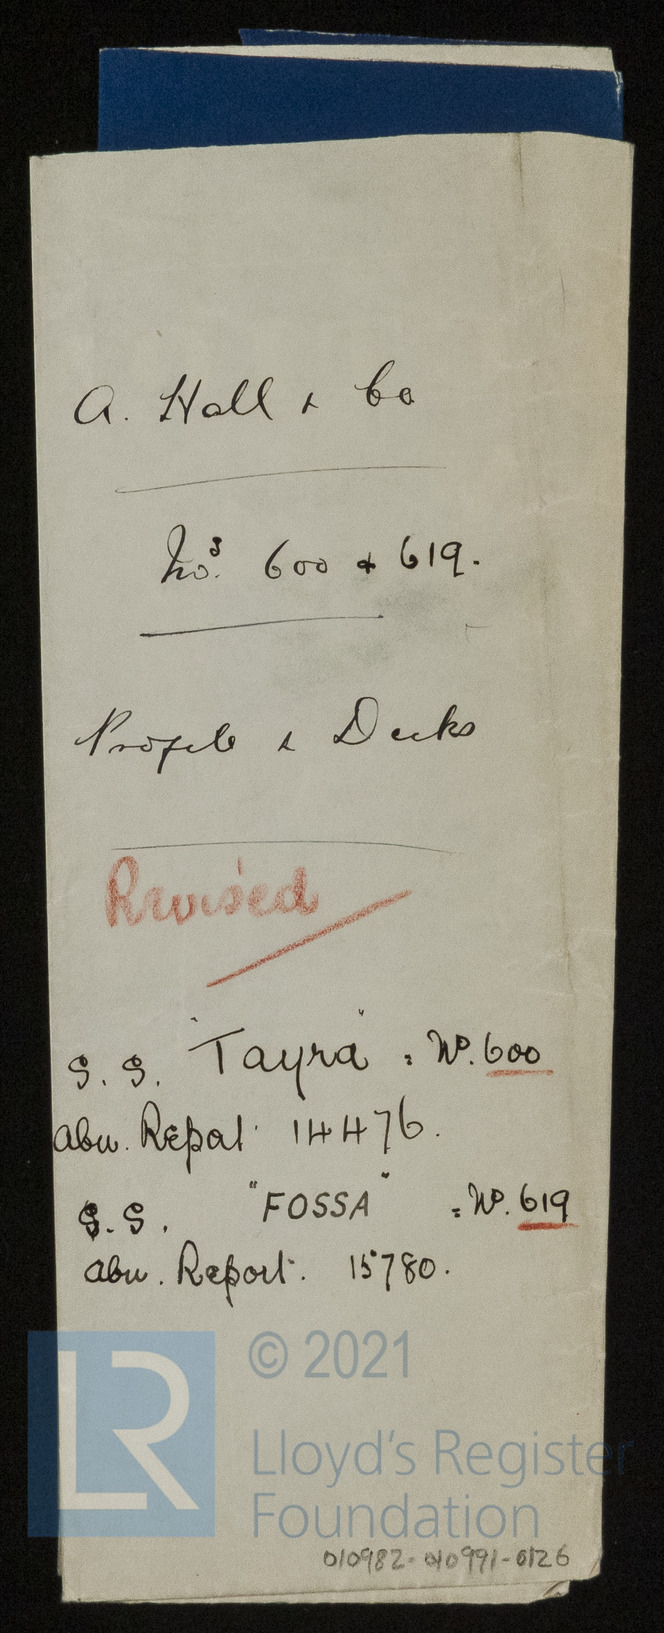 A. Hall & Co
Nos. 600 & 619.
Profile & Decks
Revised
S. S. "Tayra" = No. 600
Abn. Report 14476.
S. S. "FOSSA" = No. 619
Abn. Report. 15780.
© 2021
LR
Lloyd's Register
Foundation
010982-010991-0126